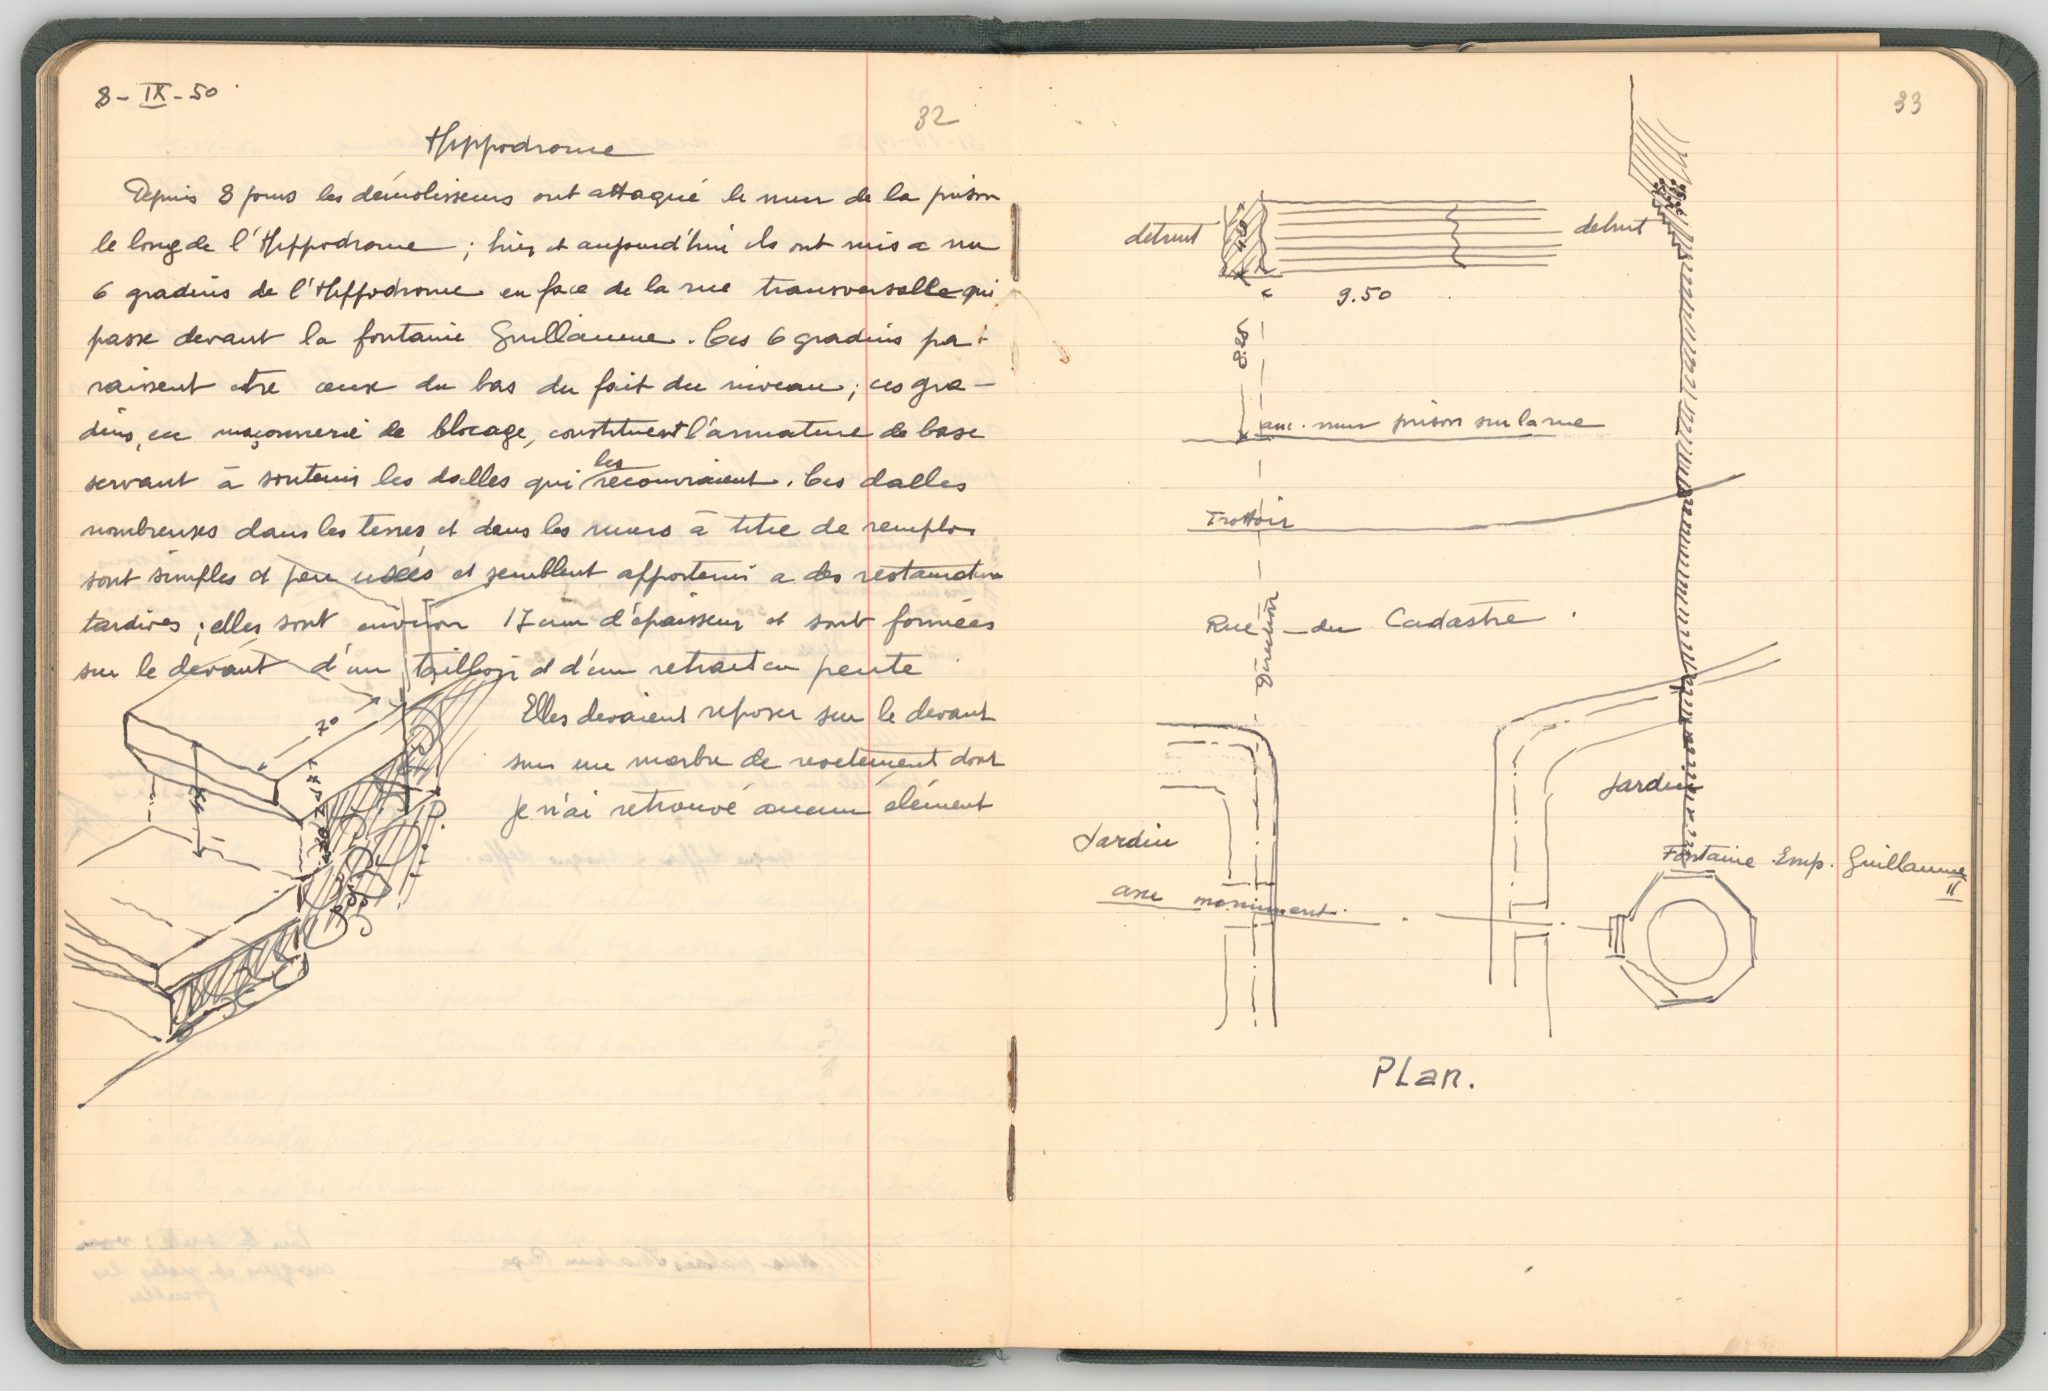 8-IX-50
32
Hippodrome
Depuis 8 jours les démolisseurs ont attaqué le mur de la prison
le long de l'Hippodrome ; hier et aujourd'hui ils ont mis a nu
6 gradins de l'Hippodrome en face de la rue transversalle qui
passe devant la fontaine Guillaume. Ces 6 gradins pa-
raissent etre ceux du bas du fait du niveau ; ces gra-
dins, en maçonnerie de blocage, constituent l'armature de base
servant à soutenir les dalles qui les recouvraient. Ces dalles
nombreuses dans les terres et dans les murs à titre de remploi
sont simples et peu usées et semblent appartenir a des restauration
tardives ; elles sont environ 17 cm d'épaisseur et sont formées
sur le devant d'un talloir et d'un retrait en pente
Elles devaient reposer sur le devant
sur un marbre de revetement dont
je n'ai retrouvé aucun élément
70
44
33
detruit
4.00
detruit
9.50
8.20
anc. mur prison sur la rue
Trottoir
Rue du Cadastre
Direction
Jardin
Jardin
axe monument.
Fontaine Emp. Guillaume
II
PLan.